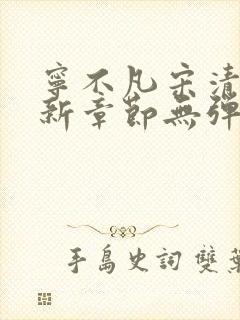 寧不凡宋清
新章節無彈
手島史詞 雙葉